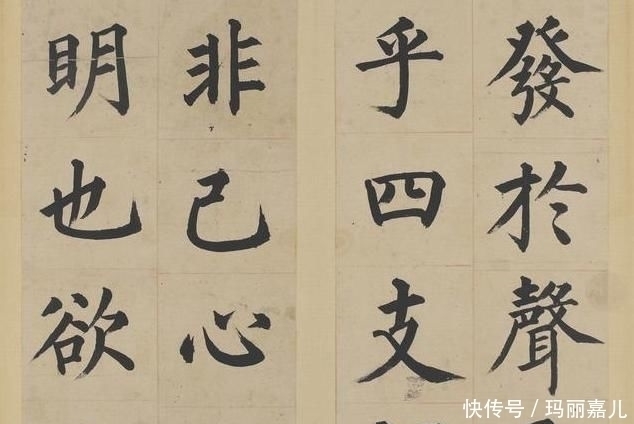 發於聲
乎四支
非己心
明也欲
快传号／玛丽嘉儿